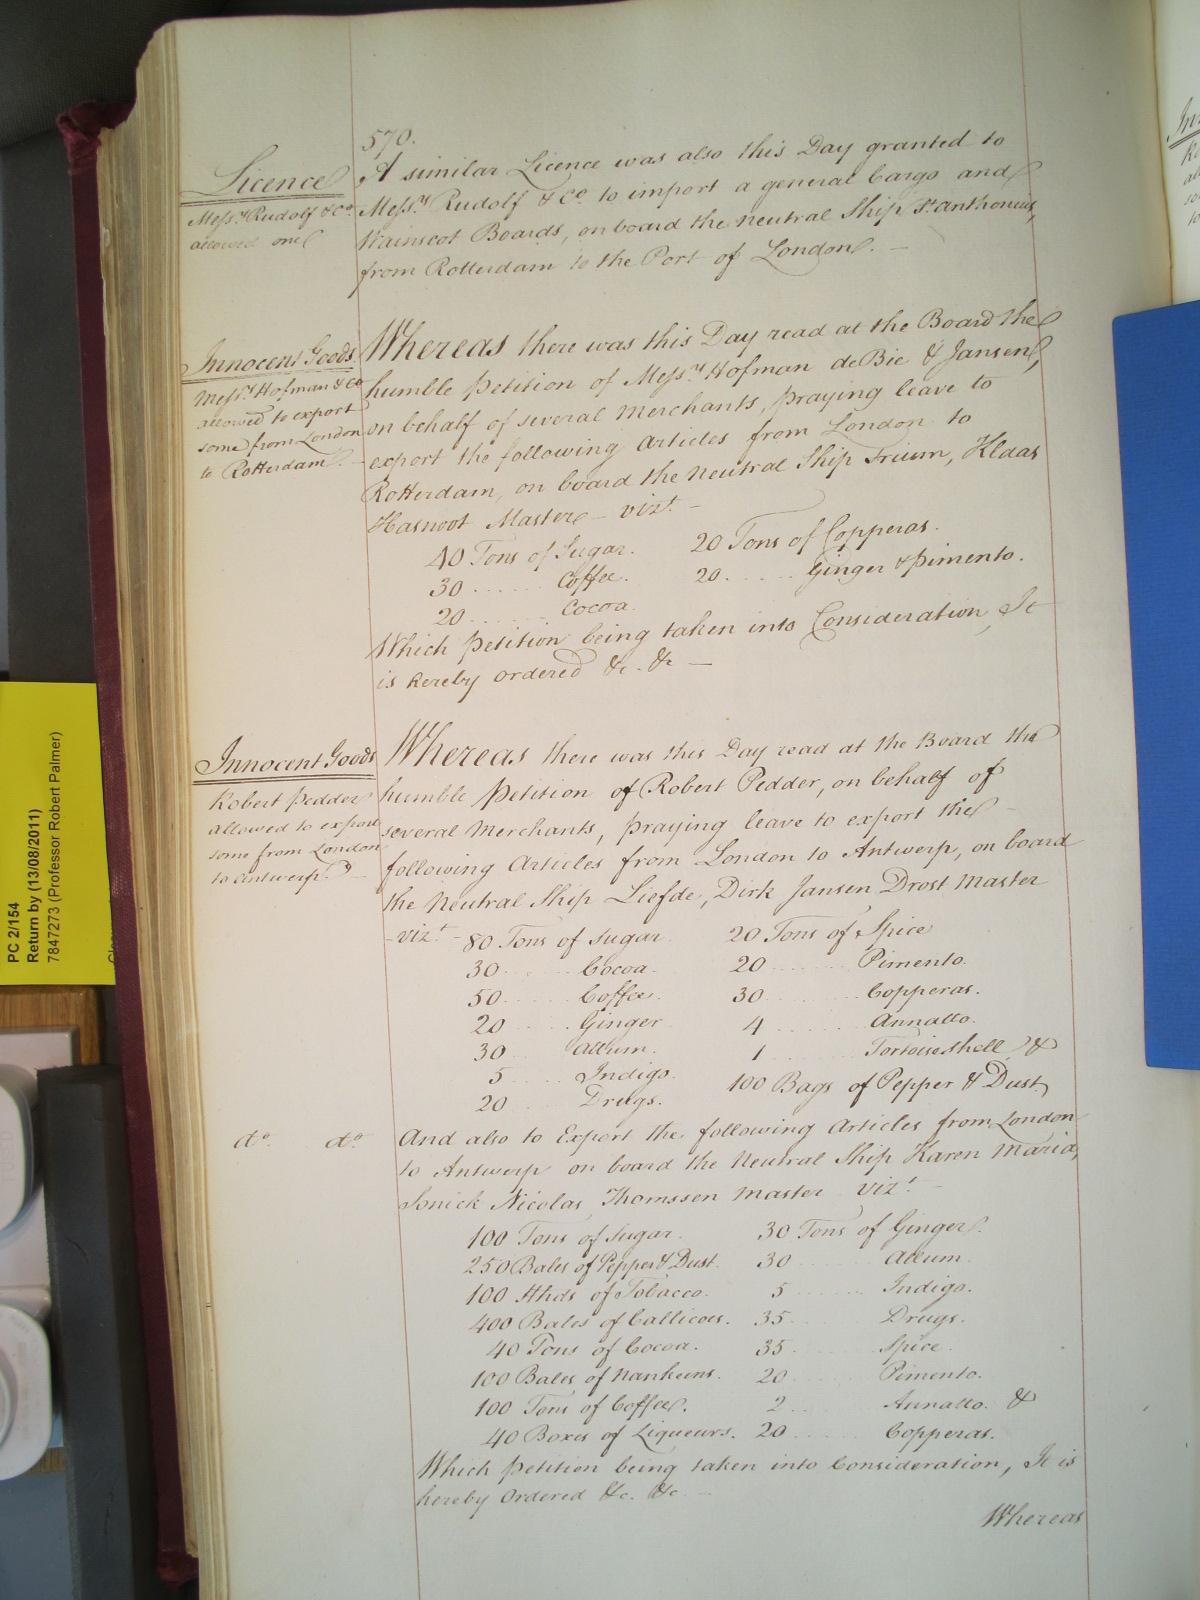 570.
Licence
Messrs. Rudolf & Co.
allowed one
A similar Licence was also this Day granted to
Messrs. Rudolf & Co. to import a general Cargo and
Wainscot Boards, on board the neutral Ship St. Anthonius,
from Rotterdam to the Port of London. —
Innocent Goods
Messrs. Hofman & Co
allowed to export
some from London
to Rotterdam. —
Whereas there was this Day read at the Board the
humble Petition of Messrs. Hofman de Bie & Jansen,
on behalf of several Merchants, praying leave to
export the following Articles from London to
Rotterdam, on board the Neutral Ship Trium, Klaas
Hasnoot Master – vizt. –
40 Tons of Sugar. 20 Tons of Copperas.
30 ...... Coffee. 20 ..... Ginger & Pimento.
20 ...... Cocoa.
Which Petition being taken into Consideration, It
is hereby ordered &c. &c —
Innocent Goods
Robert Pedder
allowed to export
some from London
to Antwerp. —
Whereas there was this Day read at the Board the
humble Petition of Robert Pedder, on behalf of
several Merchants, praying leave to export the –
following Articles from London to Antwerp, on board
the Neutral Ship Liefde, Dirk Jansen Drost Master
– vizt. – 80 Tons of Sugar. 20 Tons of Spice
30 ..... Cocoa. 20 ..... Pimento.
50 ..... Coffee. 30 ..... Copperas.
20 ..... Ginger 4 ..... Annatto.
30 ..... Allum. 1 ..... Tortoiseshell &
5 ..... Indigo. 100 Bags of Pepper & Dust
20 ..... Drugs.
do. do.
And also to Export the following Articles from London
to Antwerp on board the Neutral Ship Karen Maria,
Nicolas Thomssen Master vizt. –
100 Tons of Sugar. 30 Tons of Ginger.
250 Bales of Pepper & Dust. 30 ..... Allum
100 Hhds of Tobacco. 5 ..... Indigo.
400 Bales of Callicoes. 35 ..... Drugs.
40 Tons of Cocoa. 35 ..... Spice.
100 Bales of Nankeens. 20 ..... Pimento.
100 Tons of Coffee. 2 ..... Annatto. &
40 Boxes of Liqueurs. 20 ..... Copperas.
Which Petition being taken into Consideration, It is
hereby Ordered &c. &c —
Whereas
PC 2/154
Return by (13/08/2011)
7847273 (Professor Robert Palmer)